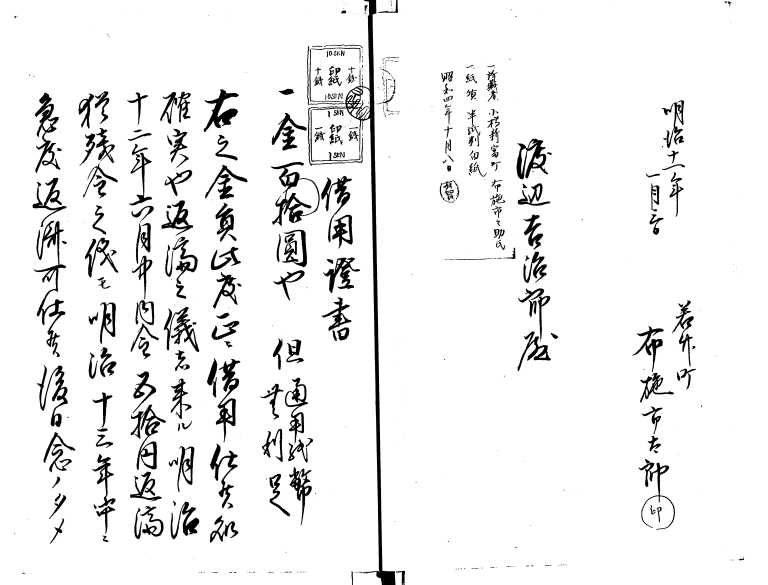 明治十二年
一月
布施市太郎
印
渡辺吉治郎殿
一所蔵者 小杉新富町 布施市之助氏
一紙質 半紙判白紙
昭和四年十月八日
借用證書
10 SEN
十銭 印紙 十銭
10 SEN
1 SEN
一銭 印紙 一銭
1 SEN
一金百拾圓也 但通用紙幣
無利足
右之金員此度正ニ借用仕候処
確実也返済之儀者来ル明治
十二年六月中内金五拾円返済
猶残金之儀モ明治十三年中ニ
急度返済可仕候後日念ノタメ